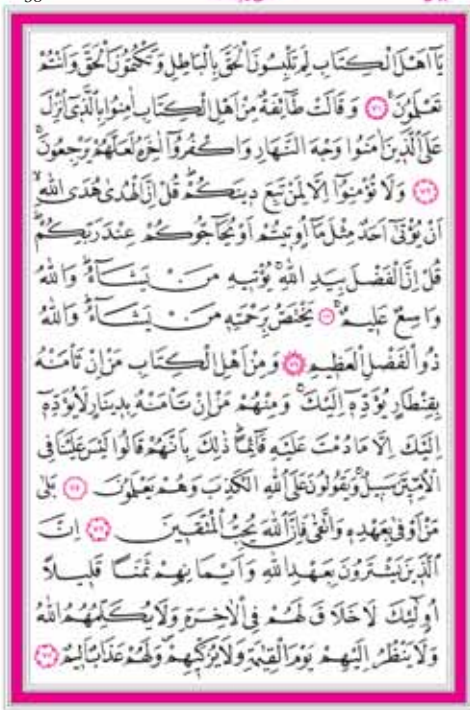 يَٓا اَهْلَ الْكِتَابِ لِمَ تَلْبِسُونَ الْحَقَّ بِالْبَاطِلِ وَتَكْتُمُونَ الْحَقَّ وَاَنْتُمْ
تَعْلَمُونَ ۟ ﴿٧١﴾ وَقَالَتْ طَٓائِفَةٌ مِنْ اَهْلِ الْكِتَابِ اٰمِنُوا بِالَّذٖٓي اُنْزِلَ
عَلَى الَّذٖينَ اٰمَنُوا وَجْهَ النَّهَارِ وَاكْفُرُٓوا اٰخِرَهُ لَعَلَّهُمْ يَرْجِعُونَۚ
﴿٧٢﴾ وَلَا تُؤْمِنُٓوا اِلَّا لِمَنْ تَبِعَ دٖينَكُمْؕ قُلْ اِنَّ الْهُدٰى هُدَى اللّٰهِۙ
اَنْ يُؤْتٰٓى اَحَدٌ مِثْلَ مَٓا اُوتٖيتُمْ اَوْ يُحَٓاجُّوكُمْ عِنْدَ رَبِّكُمْؕ
قُلْ اِنَّ الْفَضْلَ بِيَدِ اللّٰهِۚ يُؤْتٖيهِ مَنْ يَشَٓاءُؕ وَاللّٰهُ
وَاسِعٌ عَلٖيمٌۚ ﴿٧٣﴾ يَخْتَصُّ بِرَحْمَتِهٖ مَنْ يَشَٓاءُؕ وَاللّٰهُ
ذُو الْفَضْلِ الْعَظٖيمِ ﴿٧٤﴾ وَمِنْ اَهْلِ الْكِتَابِ مَنْ اِنْ تَأْمَنْهُ
بِقِنْطَارٍ يُؤَدِّهٖٓ اِلَيْكَۚ وَمِنْهُمْ مَنْ اِنْ تَأْمَنْهُ بِدٖينَارٍ لَا يُؤَدِّهٖٓ
اِلَيْكَ اِلَّا مَا دُمْتَ عَلَيْهِ قَٓائِمًاؕ ذٰلِكَ بِاَنَّهُمْ قَالُوا لَيْسَ عَلَيْنَا فِي
الْاُمِّيّٖنَ سَبٖيلٌۚ وَيَقُولُونَ عَلَى اللّٰهِ الْكَذِبَ وَهُمْ يَعْلَمُونَ ﴿٧٥﴾ بَلٰى
مَنْ اَوْفٰى بِعَهْدِهٖ وَاتَّقٰى فَاِنَّ اللّٰهَ يُحِبُّ الْمُتَّقٖينَ ﴿٧٦﴾ اِنَّ
الَّذٖينَ يَشْتَرُونَ بِعَهْدِ اللّٰهِ وَاَيْمَانِهِمْ ثَمَنًا قَلٖيلًا
اُو۬لٰٓئِكَ لَا خَلَاقَ لَهُمْ فِي الْاٰخِرَةِ وَلَا يُكَلِّمُهُمُ اللّٰهُ
وَلَا يَنْظُرُ اِلَيْهِمْ يَوْمَ الْقِيٰمَةِ وَلَا يُزَكّٖيهِمْ وَلَهُمْ عَذَابٌ اَلٖيمٌ ﴿٧٧﴾